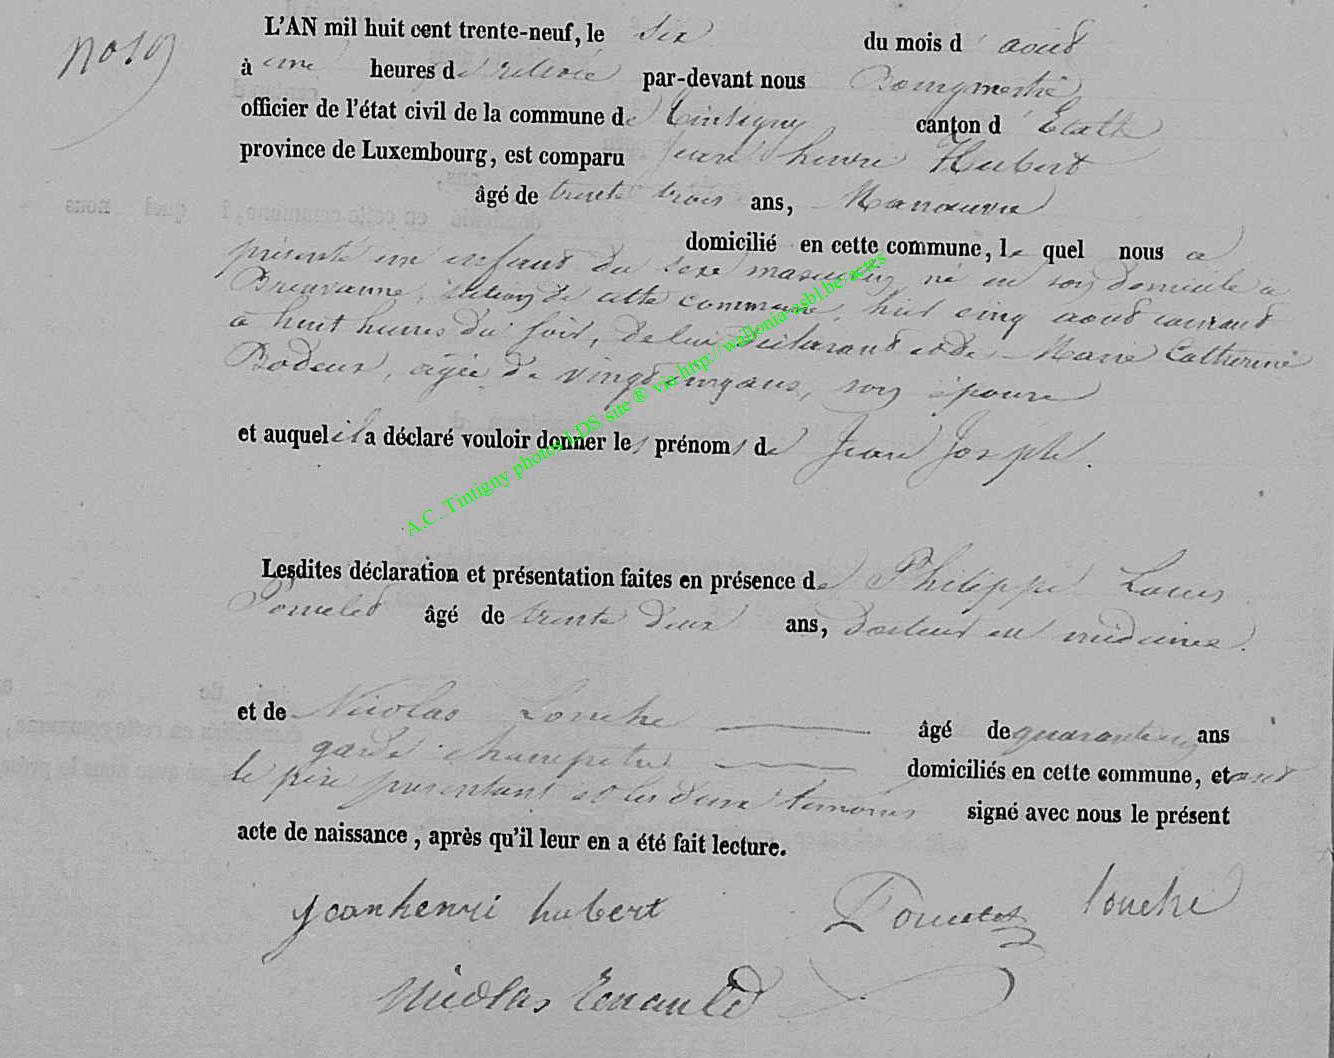 L'AN mil huit cent trente-neuf, le six du mois d'aout
à une heures de relevée par-devant nous Bourgmestre
officier de l'état civil de la commune de Tintigny canton d'Etalle
province de Luxembourg, est comparu Jean henri Hubert
âgé de trente trois ans, Manœuvre
domicilié en cette commune, le quel nous a
présenté un enfant du sexe masculin, né en son domicile a
Breuvanne, section de cette commune, hier cinq aout courant
a huit heures du soir, de lui déclarant et de Marie Catherine
Bodeux, agée de vingt cinq ans, son épouse
et auquel il a déclaré vouloir donner les prénoms de Jean Joseph.
A.C. Tintigny photos LDS site ® via http://wallonia-asbl.be/actes
Lesdites déclaration et présentation faites en présence de Philippe Louis
âgé de trente deux ans, docteur en médecine.
et de Nicolas Louche âgé de quarante ans
garde champetre domiciliés en cette commune, et ont
le père présentant et les deux témoins signé avec nous le présent
acte de naissance, après qu'il leur en a été fait lecture.
jean henri hubert louche
Nicolas Renauld